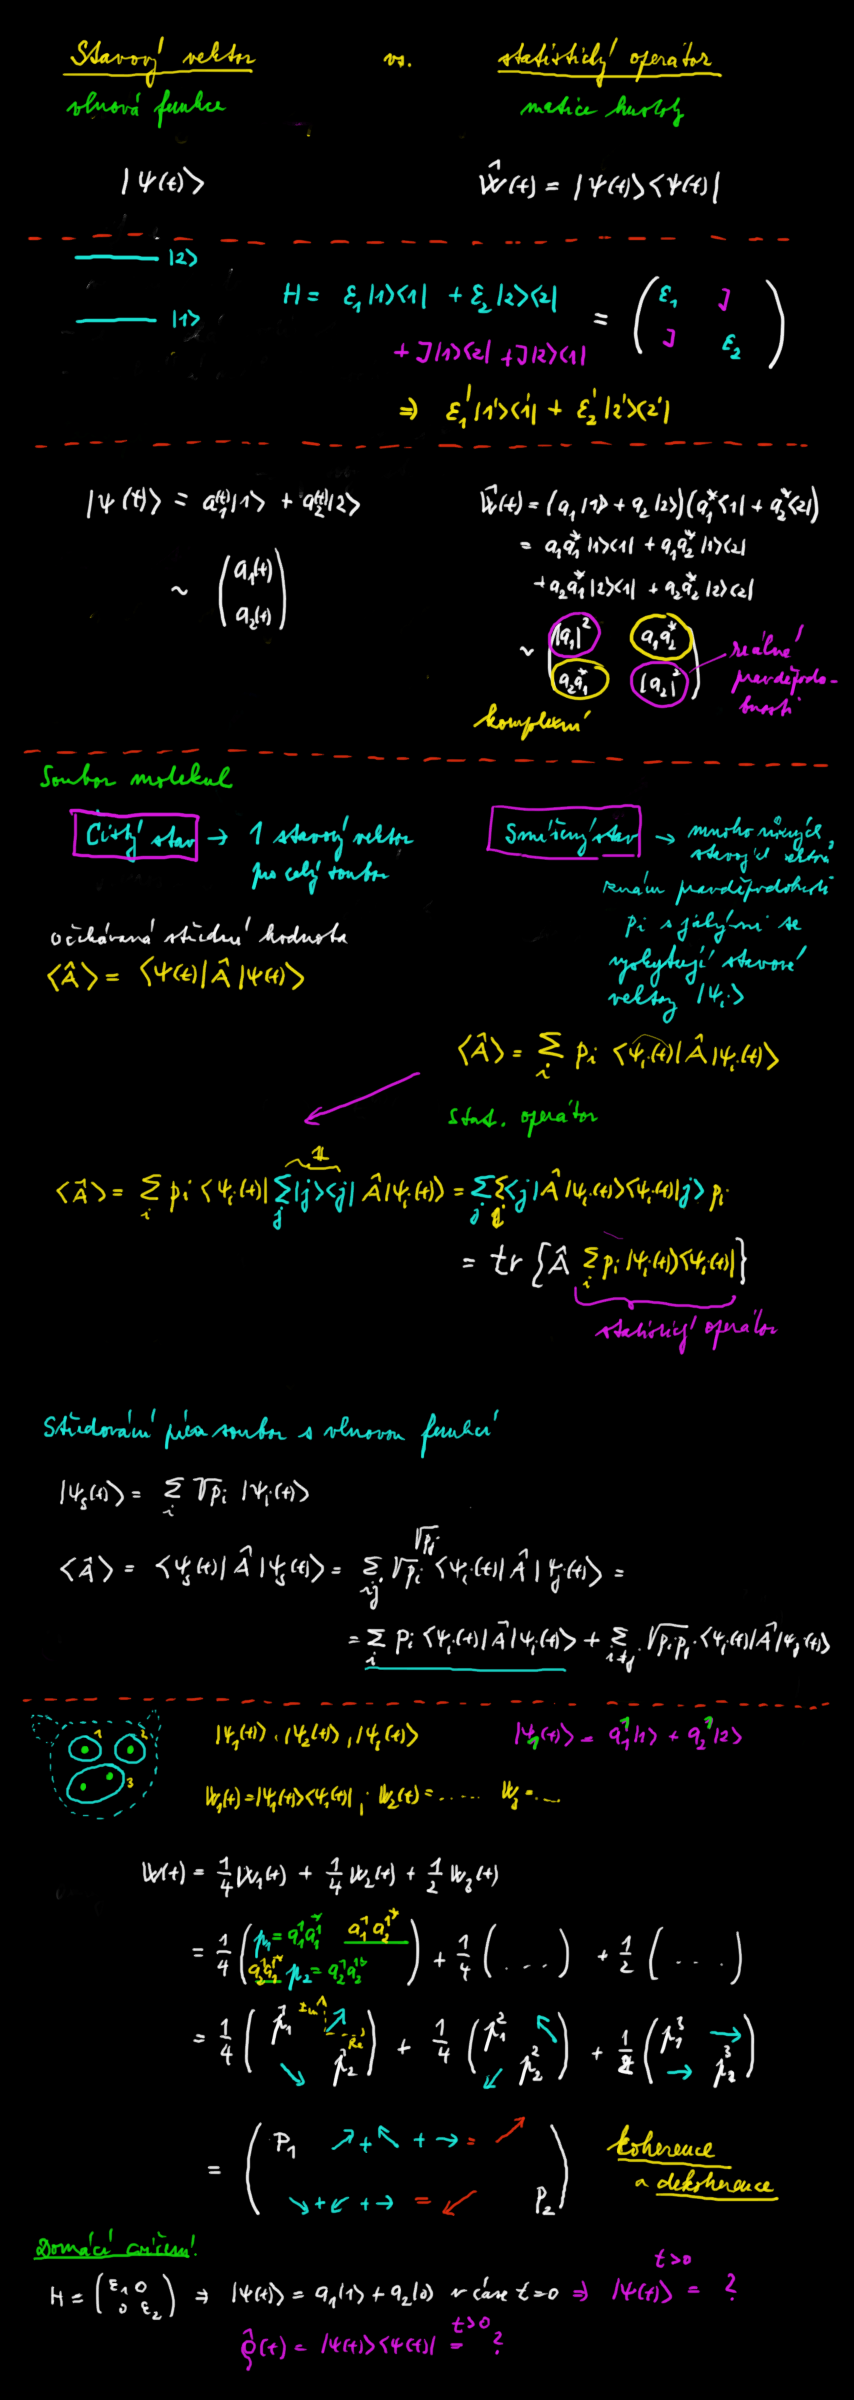 Stavový vektor vs. statistický operátor
vlnová funkce matice hustoty
|Ψ(t)> Ŵ(t) = |Ψ(t)><Ψ(t)|
|2>
|1>
H = ε₁|1><1| + ε₂|2><2|
+ J|1><2| + J|2><1|
= ( ε₁ J
J ε₂ )
⇒ ε₁'|1'><1'| + ε₂'|2'><2'|
|Ψ(t)> = a₁(t)|1> + a₂(t)|2>
~ ( a₁(t)
a₂(t) )
Ŵ(t) = (a₁|1> + a₂|2>)(a₁*<1| + a₂*<2|)
= a₁a₁*|1><1| + a₁a₂*|1><2|
+ a₂a₁*|2><1| + a₂a₂*|2><2|
~ ( |a₁|² a₁a₂*
a₂a₁* |a₂|² )
reálné
pravděpodo-
bnosti
komplexní
Soubor molekul
Čistý stav → 1 stavový vektor
pro celý soubor
Smíšený stav → mnoho různých
stavových vektorů,
známe pravděpodobnosti
pᵢ s jakými se
vyskytují stavové
vektory |Ψᵢ>
očekávaná střední hodnota
<Â> = <Ψ(t)|Â|Ψ(t)>
<Â> = ∑ᵢ pᵢ <Ψᵢ(t)|Â|Ψᵢ(t)>
stat. operátor
1
<Â> = ∑ᵢ pᵢ <Ψᵢ(t)| ∑ⱼ |j><j| Â|Ψᵢ(t)> = ∑ⱼ ∑ᵢ <j|Â|Ψᵢ(t)><Ψᵢ(t)|j> pᵢ
= tr { Â ∑ᵢ pᵢ |Ψᵢ(t)><Ψᵢ(t)| }
statistický operátor
Středování přes soubor s vlnovou funkcí
|Ψₛ(t)> = ∑ᵢ √pᵢ |Ψᵢ(t)>
<Â> = <Ψₛ(t)|Â|Ψₛ(t)> = ∑ᵢⱼ √pᵢ √pⱼ <Ψᵢ(t)|Â|Ψⱼ(t)> =
= ∑ᵢ pᵢ <Ψᵢ(t)|Â|Ψᵢ(t)> + ∑ᵢ≠ⱼ √pᵢpⱼ <Ψᵢ(t)|Â|Ψⱼ(t)>
1 2
3
|Ψ₁(t)>, |Ψ₂(t)>, |Ψᵢ(t)> |Ψ₁(t)> = a₁¹|1> + a₂¹|2>
W₁(t) = |Ψ₁(t)><Ψ₁(t)|, W₂(t) = ...... W₃ = ....
W(t) = 1/4 W₁(t) + 1/4 W₂(t) + 1/2 W₃(t)
= 1/4 ( p₁ = a₁¹a₁¹* a₁¹a₂¹*
a₂¹a₁¹* p₂ = a₂¹a₂¹* ) + 1/4 (...) + 1/2 (....)
= 1/4 ( p₁¹ Im ↗ Re
↘ p₂¹ ) + 1/4 ( p₁² ↖
↙ p₂² ) + 1/2 ( p₁³ →
→ p₂³ )
= ( P₁ ↗ + ↖ + → = ↗
↘ + ↙ + → = ↙ P₂ )
koherence
a dekoherence
Domácí cvičení!
H = ( ε₁ 0
0 ε₂ ) ⇒ |Ψ(t)> = a₁|1> + a₂|0> v čase t=0 ⇒ t>0 |Ψ(t)> = ?
ρ̂(t) = |Ψ(t)><Ψ(t)| = t>0 ?